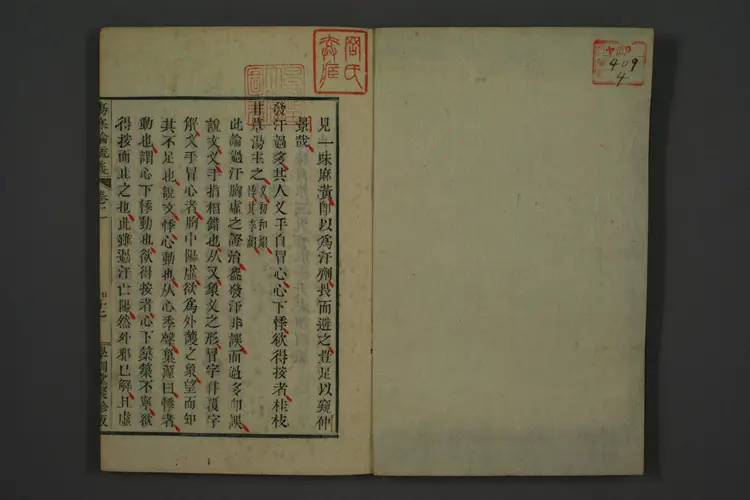 見一味麻黃卽以爲汗劑長而避之豈足以窺仲
景哉
發汗過多其人叉手自冒心心下悸欲得按者桂枝
甘草湯主之
此論過汗胸虛之證治蓋發汗非誤而過多卽誤
說文叉手指相錯也从又象叉之形冒字作覆字
解叉手冒心者胸中陽虛欲爲外護之象望而知
其不足也說文悸心動也从心季聲巢源曰悸者
動也謂心下悸動也欲得按者心下築築不寧欲
得按而止之也此雖過汗亡陽然外邪已解且虛
傷寒論疏義 卷二
409
4